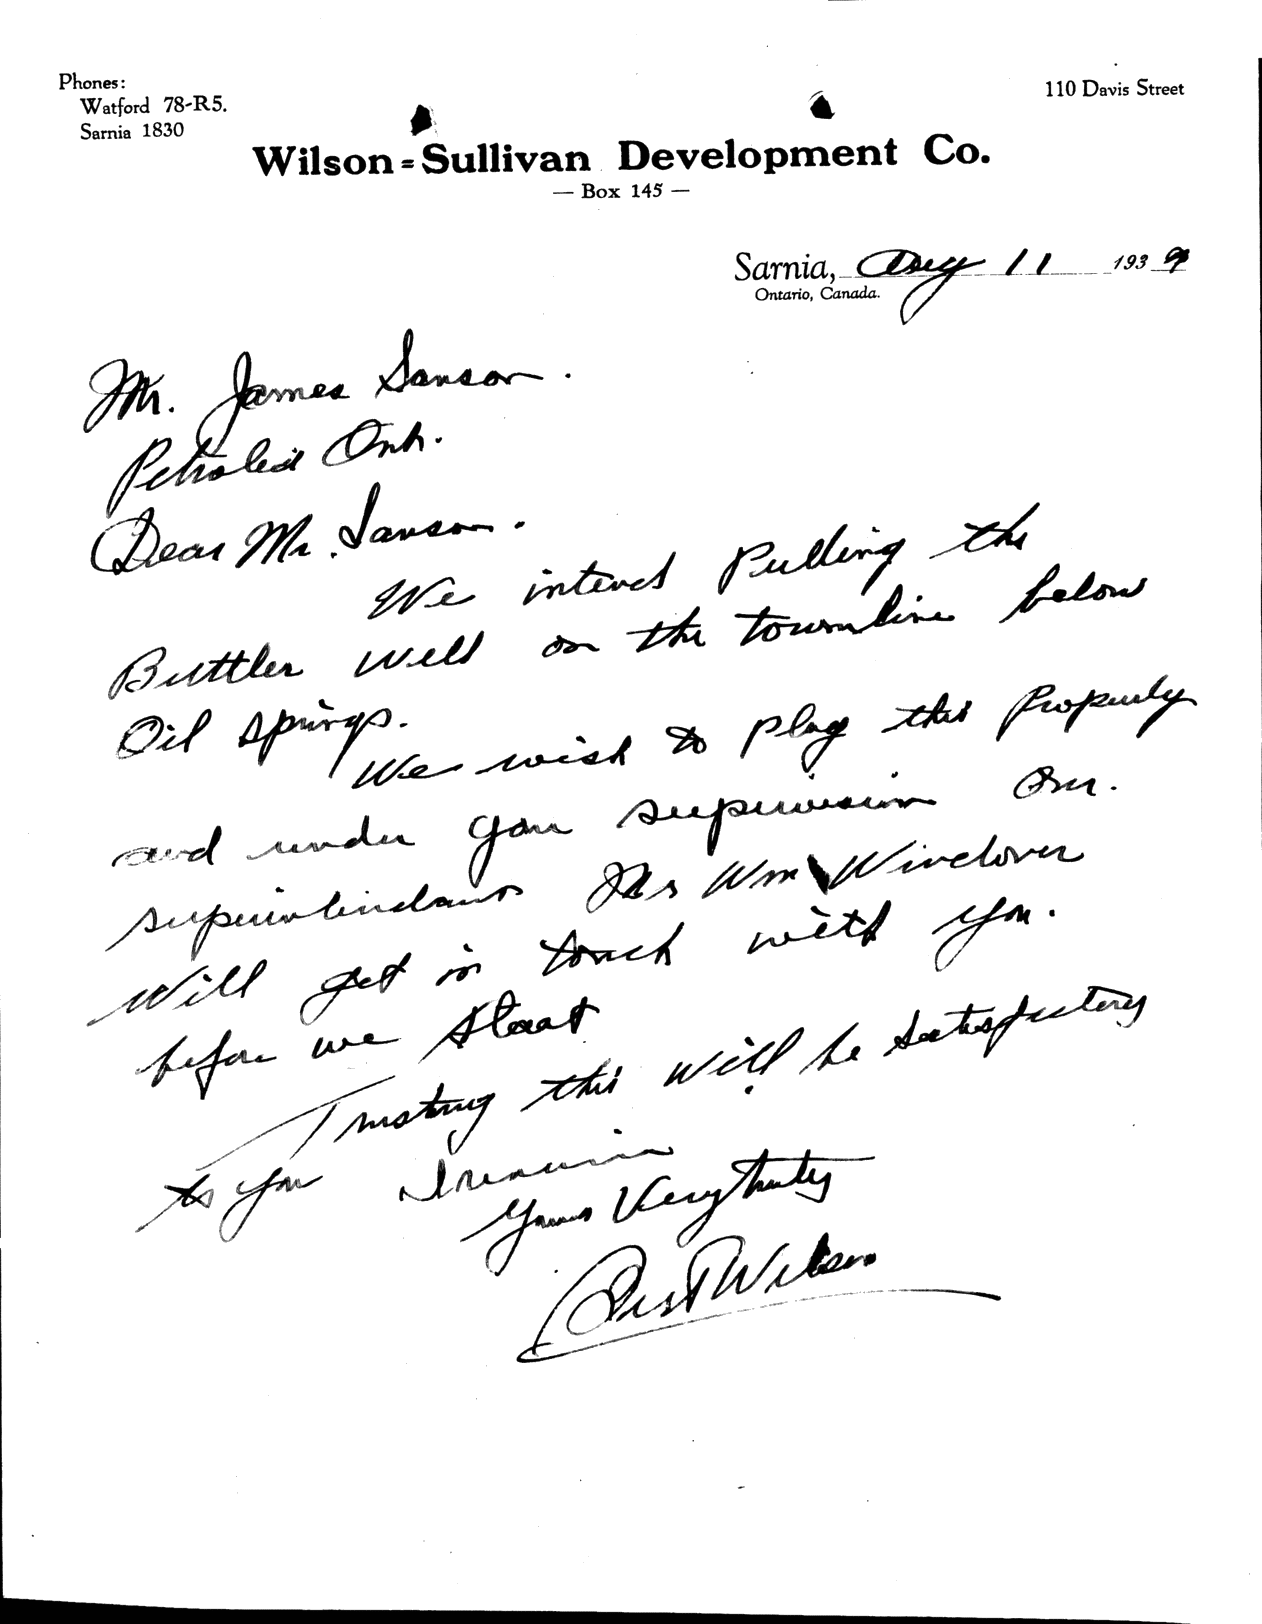 Phones:
Watford 78-R5.
Sarnia 1830
110 Davis Street
Wilson=Sullivan Development Co.
— Box 145 —
Sarnia, Aug 11 1939
Ontario, Canada.
Mr. James Sanson.
Petrolea Ont.
Dear Mr. Sanson.
We intend Pulling the
Buttler well on the townline below
Oil Springs.
We wish to plug this Properly
and under your supervision Our.
superintendant Mr Wm Winelover
will get in touch with you.
before we start
Trusting this will be satisfactory
to you I remain
Yours Very truly
Wilson